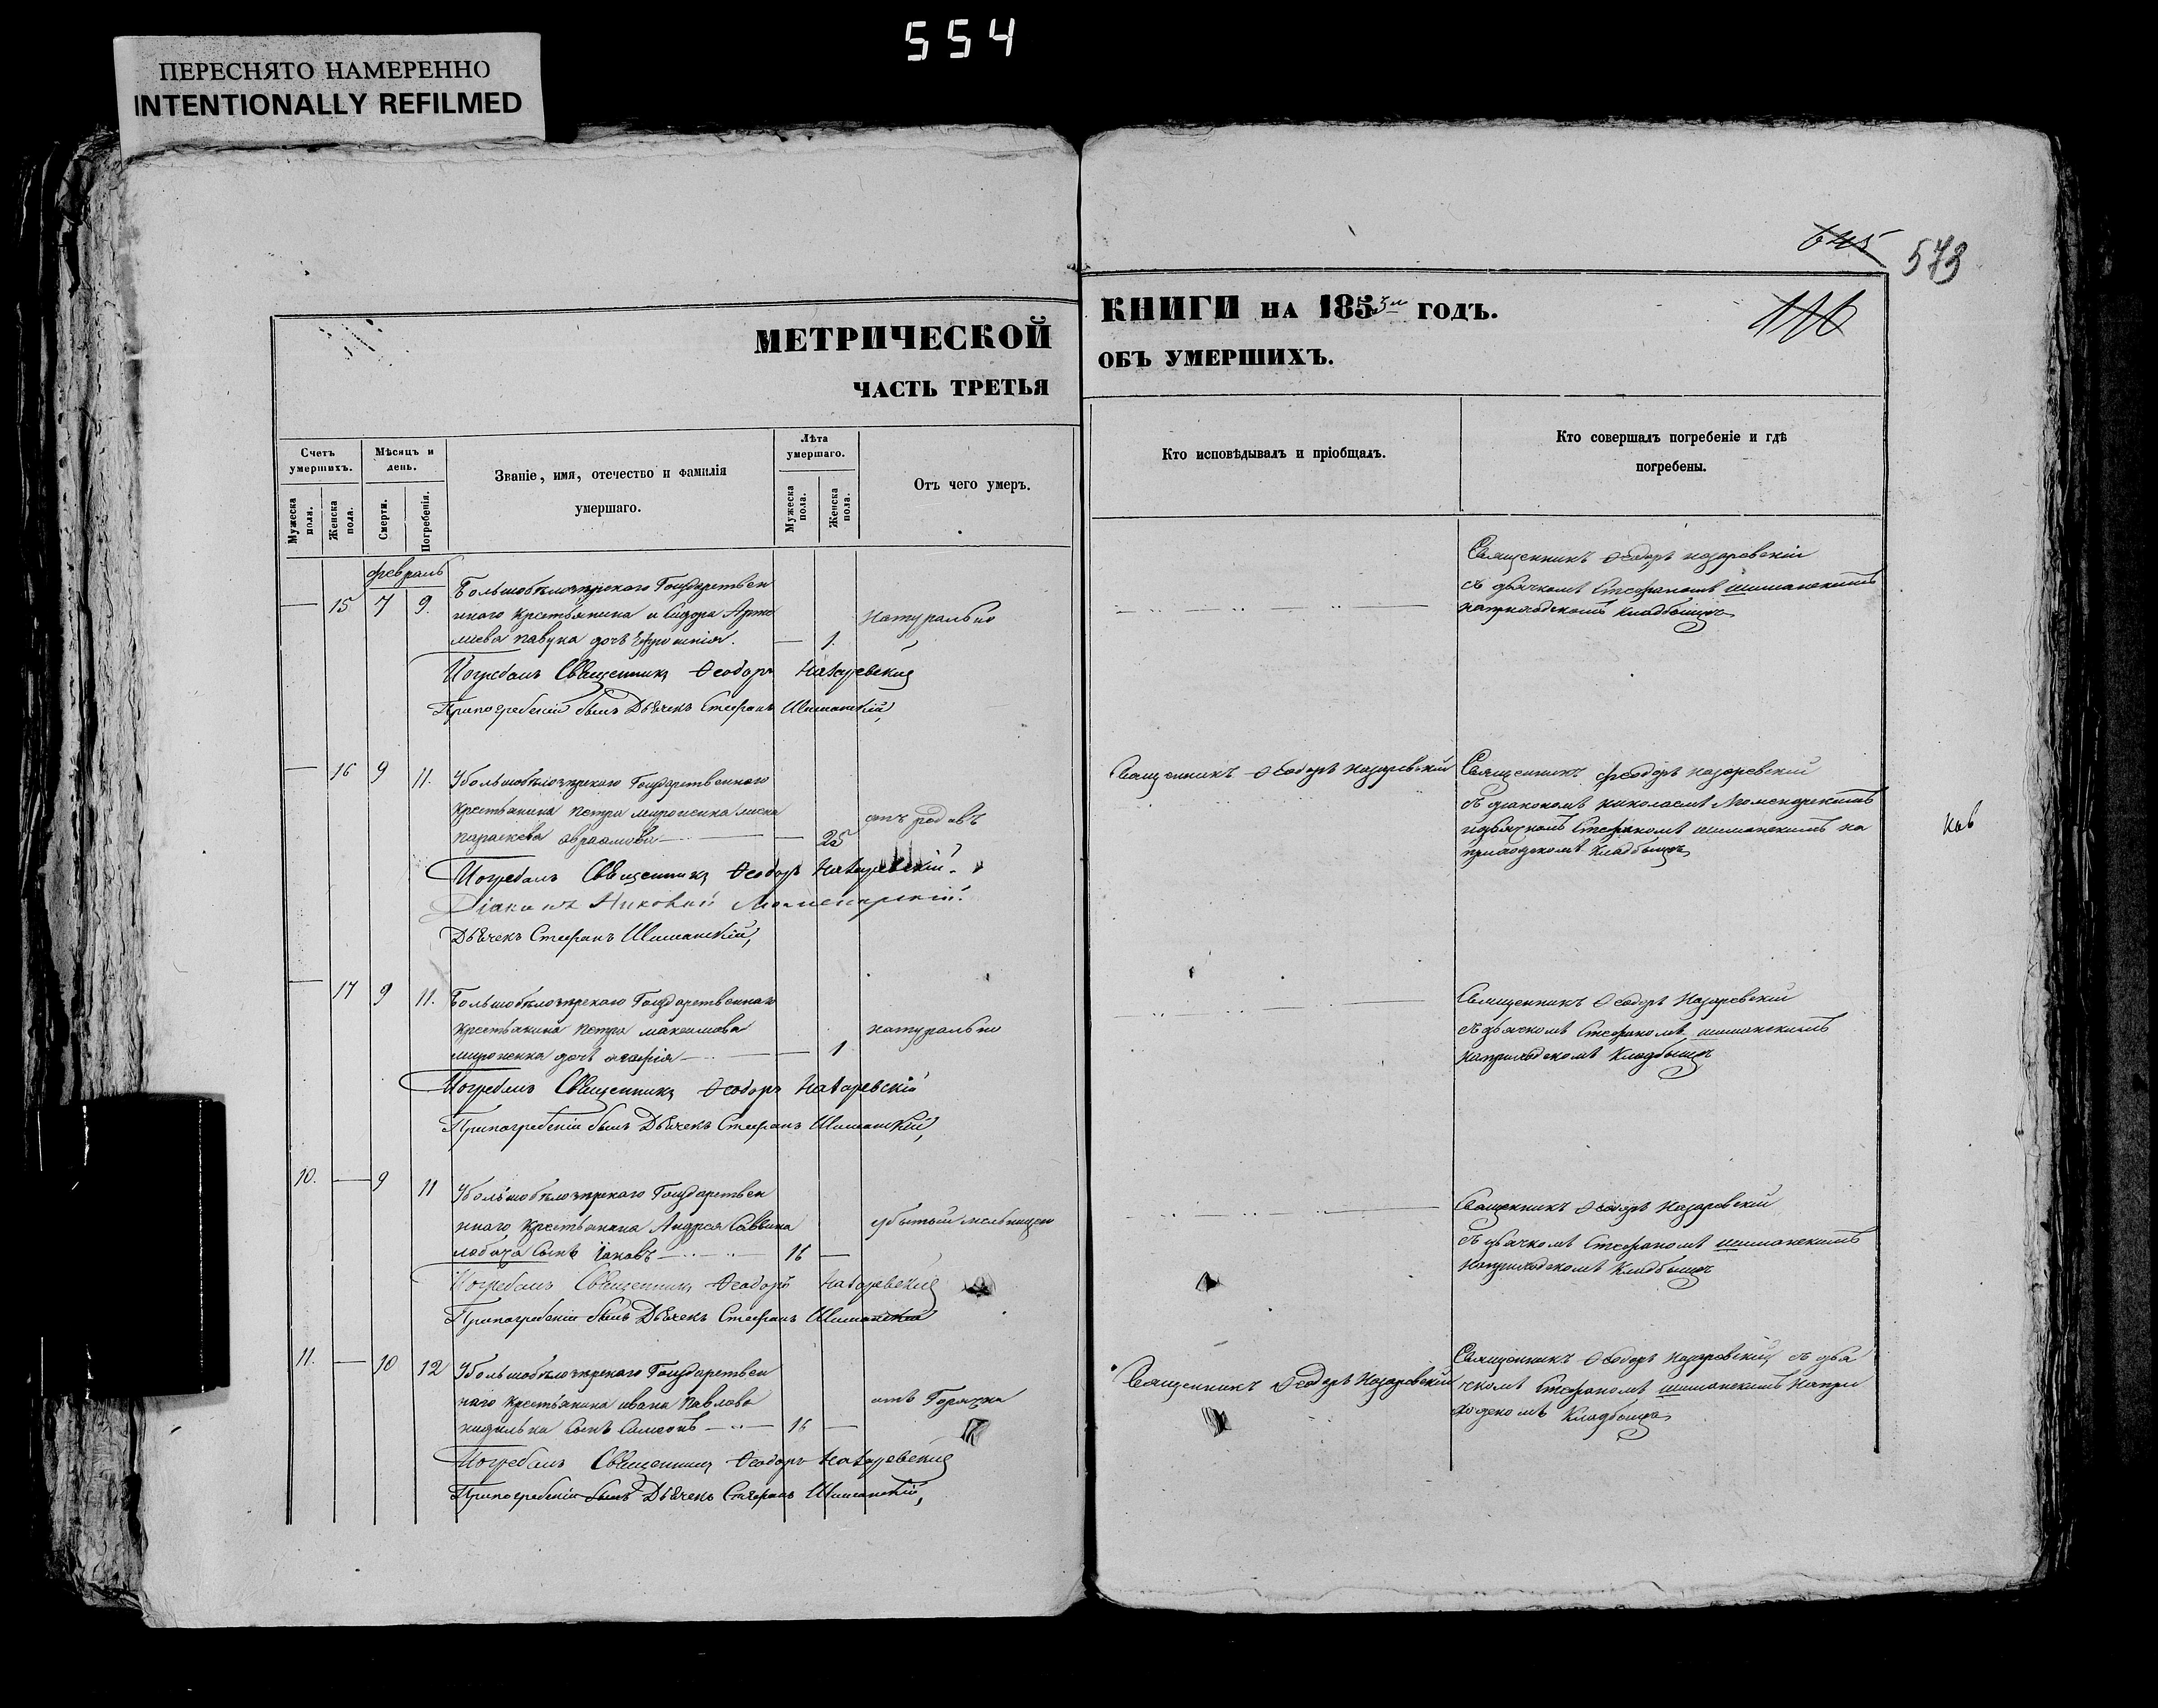 554
ПЕРЕСНЯТО НАМЕРЕННО
INTENTIONALLY REFILMED
645 573
116
МЕТРИЧЕСКОЙ
ЧАСТЬ ТРЕТЬЯ
КНИГИ НА 1853й ГОДЪ.
ОБЪ УМЕРШИХЪ.
Счетъ умершихъ.
Мужеска пола.
Женска пола.
Мѣсяцъ и день.
Смерти.
Погребенія.
Званіе, имя, отечество и фамилія
умершаго.
Лѣта умершаго.
Мужеска пола.
Женска пола.
Отъ чего умеръ.
Кто исповѣдывалъ и пріобщалъ.
Кто совершалъ погребеніе и гдѣ
погребены.
февраль
15 7 9.
Большобѣлозерскаго Государствен
ннаго Крестьянина Сидора
павука дочь
1.
Натурально
Погребалъ Священникъ Ѳеодоръ Назаревский
При погребеніи былъ Дьячекъ Стефанъ Шиманскій,
Священникъ Ѳеодоръ Назаревскій
съ дьячкомъ Стефаномъ шиманскимъ
на приходскомъ кладбищѣ
16 9 11.
Убольшобѣлозерскаго Государственнаго
Крестьянина Петра мироненка жена
параскева
25
отъ родовъ
Погребалъ Священникъ Ѳеодоръ Назаревскій.
Діаконъ Николай
Дьячекъ Стефанъ Шиманскій,
Священникъ Ѳеодоръ Назаревскій
Священникъ Ѳеодоръ Назаревскій
съ діакономъ николаемъ
и дьячкомъ Стефаномъ шиманскимъ на
приходскомъ Кладбищѣ
17 9 11.
Большобѣлозерскаго Государственнаго
Крестьянина Петра максимова
мироненка дочь агафія
1
натурально
Погребалъ Священникъ Ѳеодоръ Назаревскій
При погребеніи былъ Дьячекъ Стефанъ Шиманскій,
Священникъ Ѳеодоръ Назаревскій
съ дьячкомъ Стефаномъ шиманскимъ
на приходскомъ Кладбищѣ
10. 9 11
Убольшобѣлозерскаго Государствен
ннаго Крестьянина Андрея Саввина
лобача Сынъ Іаковъ
16
убитый мельницею
Погребалъ Священникъ Ѳеодоръ Назаревский
При погребеніи былъ Дьячекъ Стефанъ Шиманскій
Священникъ Ѳеодоръ Назаревскій
съ дьячкомъ Стефаномъ шиманскимъ
на приходскомъ Кладбищѣ
11. 10 12
Убольшобѣлозерскаго Государствен
наго Крестьянина ивана Павлова
Сынъ Самсонъ
16
отъ Горячки
Погребалъ Священникъ Ѳеодоръ Назаревский
При погребеніи былъ Дьячекъ Стефанъ Шиманскій,
Священникъ Ѳеодоръ Назаревскій
Священникъ Ѳеодоръ Назаревскій съ дья
чкомъ Стефаномъ шиманскимъ На при
ходскомъ Кладбищѣ